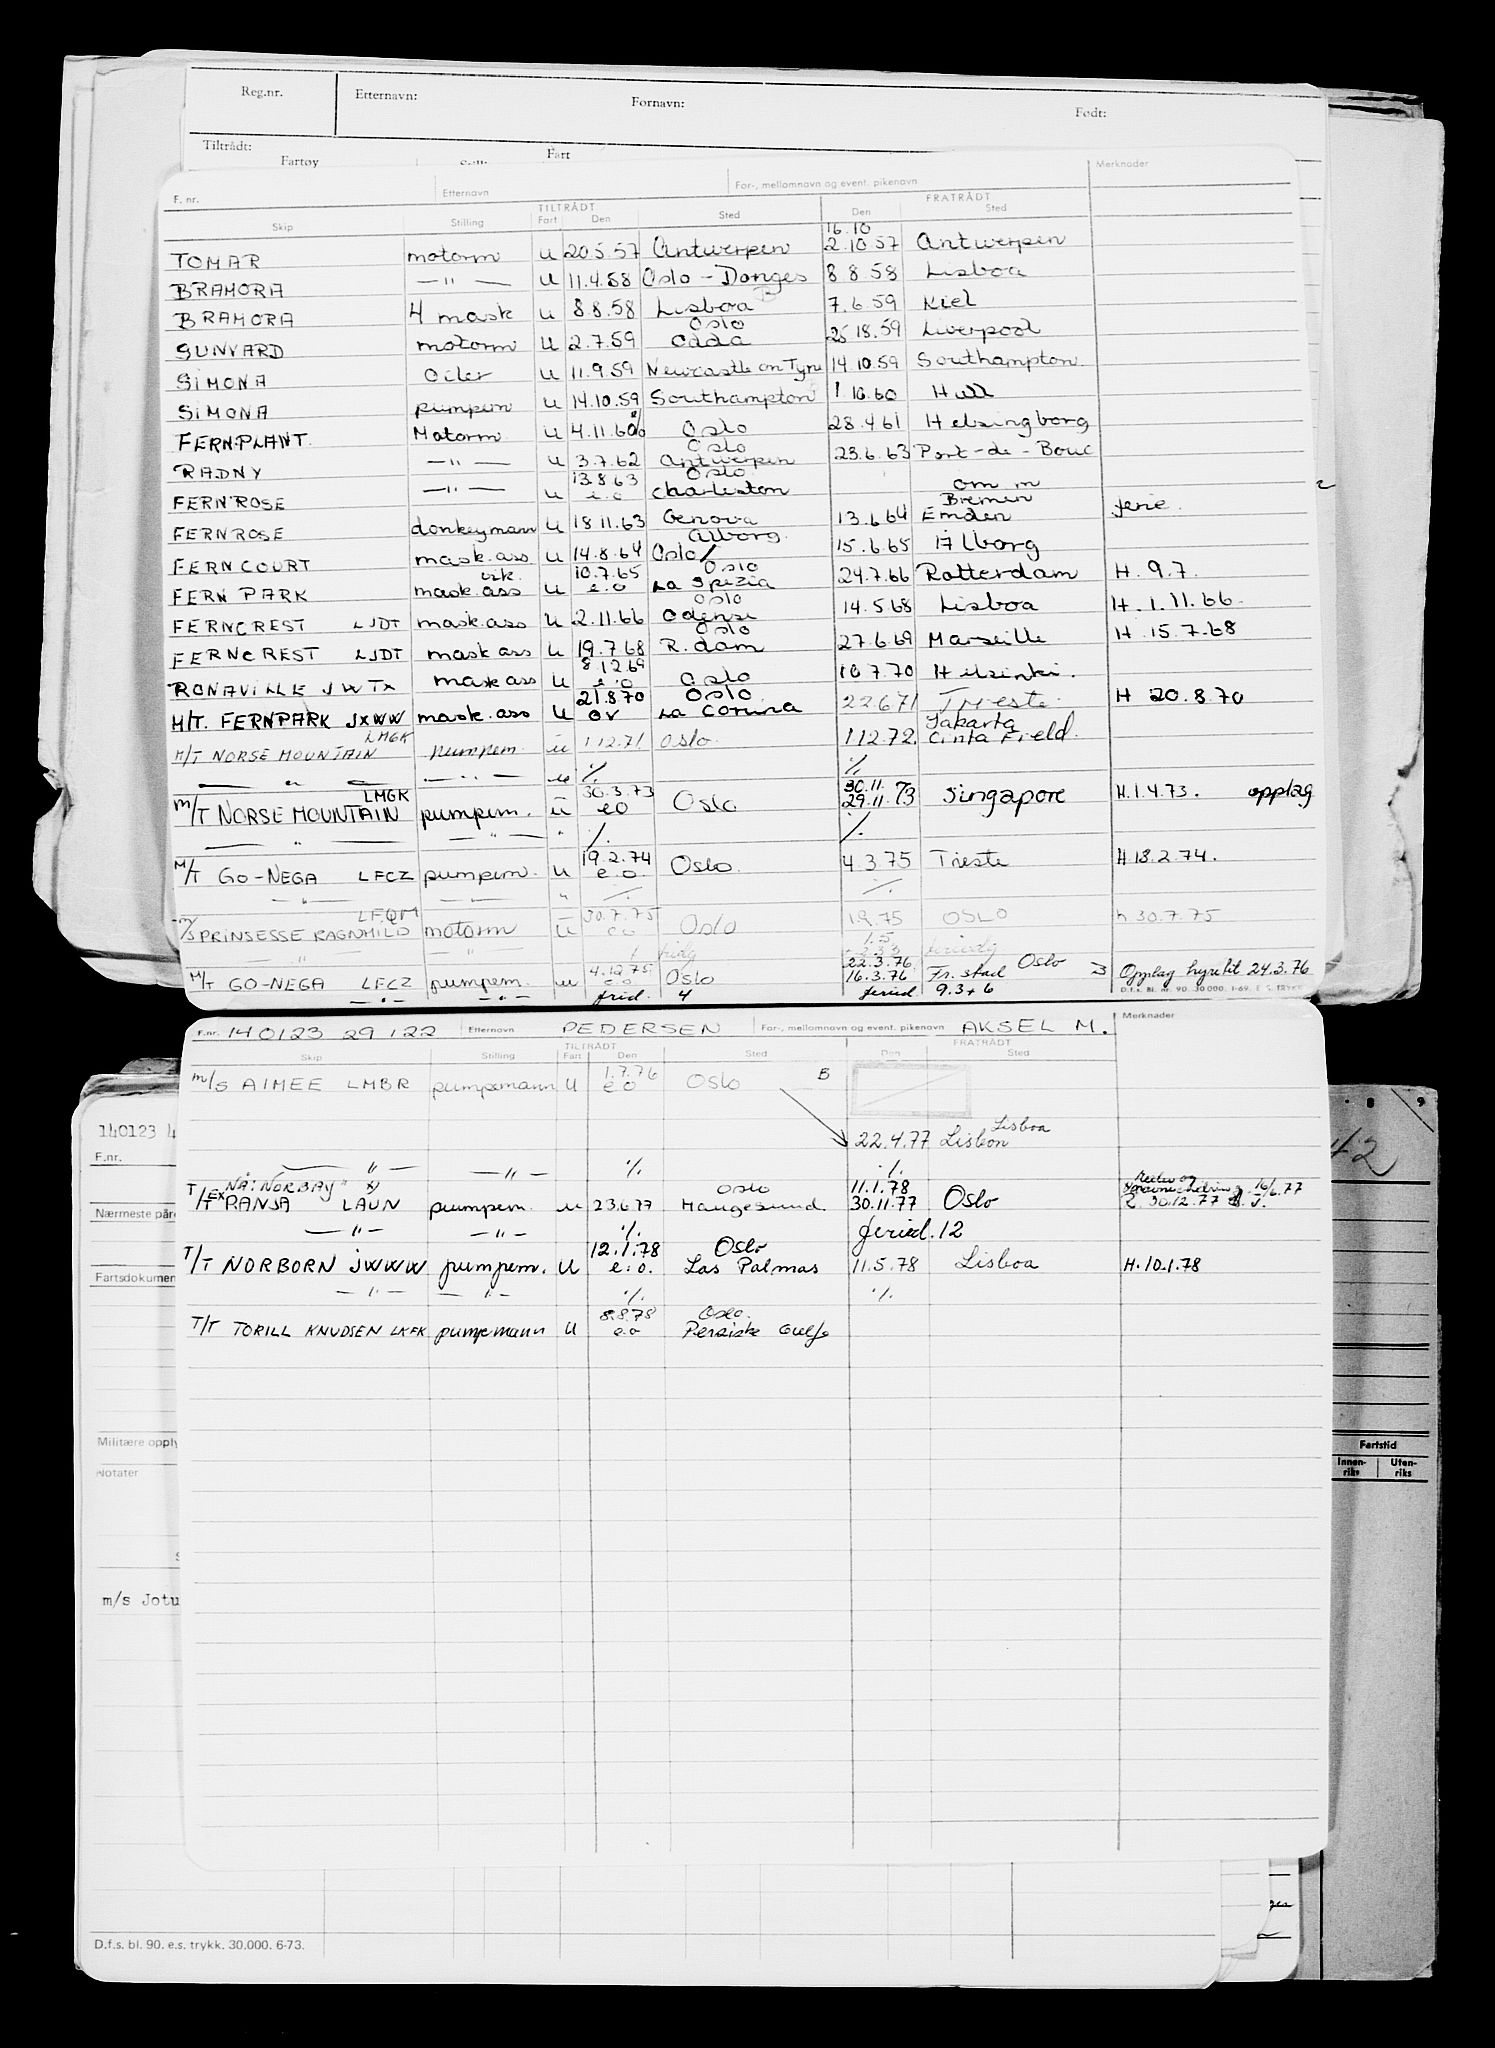 Reg.nr. Etternavn: Fornavn: Født:
Tiltrådt:
Fartøy Fart
Merknader
F. nr. Etternavn For-, mellomnavn og event. pikenavn
TILTRÅDT FRATRÅDT
Skip Stilling Fart Den Sted Den Sted
16.10
TOMAR motorm u 20.5.57 Antwerpen 2.10.57 Antwerpen
BRAMORA —"— u 11.4.58 Oslo - Donges 8.8.58 Lisboa
BRAMORA 4 mask u 8.8.58 Lisboa 7.6.59 Kiel
Oslo
GUNVARD motorm u 2.7.59 Odda 25 18.59 Liverpool
SIMONA Oiler u 11.9.59 Newcastle on Tyne 14.10.59 Southampton
SIMONA pumpem u 14.10.59 Southampton 1 10.60 Hull
FERNPLANT. Motorm. u 4.11.60 Oslo 28.4.61 Helsingborg
Oslo
RADNY —"— u 3.7.62 Antwerpen 23.6.63 Port-de-Bouc
13.8.63 Oslo om m
FERNROSE —"— u e.o Charleston Bremen
FERNROSE donkeymann u 18.11.63 Genova 13.6.64 Emden ferie.
Ålborg.
FERNCOURT mask.ass u 14.8.64 Oslo/ 15.6.65 Ålborg
10.7.65 Oslo
FERN PARK mask.ass u e.o La Spezia 24.7.66 Rotterdam H. 9.7.
Oslo
FERNCREST LJDT mask.ass u 2.11.66 Odense 14.5.68 Lisboa H. 1.11.66.
Oslo
FERNCREST LJDT mask ass u 19.7.68 R.dam 27.6.69 Marseille H. 15.7.68
8.12.69
RONAVILLE JWTX mask ass u e.o Oslo 10.7.70 Helsinki.
21.8.70 Oslo
M/T. FERNPARK JXWW mask.ass u ov La Coruna 22.6.71 Trieste H 20.8.70
LMGK Jakarta
M/T NORSE MOUNTAIN pumpem. u 1.12.71 Oslo. 1 12.72. Cinta Field.
— " — — " — u % %
LMGK 30.3.73 30.11.
M/T NORSE MOUNTAIN pumpem. u eo Oslo 29.11.73 Singapore H.1.4.73. opplag
— " — — " — " %. %.
19.2.74
M/T GO-NEGA LFCZ pumpem. u e.o. Oslo. 4.3.75 Trieste H 18.2.74.
— " — — " — " %. %.
LFQM 30.7.75
M/S PRINSESSE RAGNHILD motorm u eo Oslo 1.9.75 OSLO h 30.7.75
— " — — " —
4.12.75. 22.3.76 Oslo
M/T GO-NEGA LFCZ pumpem. u e.o Oslo 16.3.76 Fr.stad Opplag hyre til 24.3.76
— " — — " — frid. 4 feried 9.3+6 D.f.s. bl. nr. 90. 30 000. 1-69. E. S. TRYKK
F.nr. 140123 29122 Etternavn PEDERSEN For-, mellomnavn og event. pikenavn AKSEL M. Merknader
TILTRÅDT FRATRÅDT
Skip Stilling Fart Den Sted Den Sted
1.7.76
m/s AIMEE LMBR pumpemann u e o Oslo B
Lisboa
22.4.77 Lisbon
— " — — " — %. %.
NÅ: NORBAY" x) Oslo 11.1.78
T/T EX RANJA LAUN pumpem. u 23.6.77 Haugesund. 30.11.77 Oslo 30.12.77
— " — — " — %. feried. 12
12.1.78 Oslo
T/T NORBORN JWWW pumpem. u e.o. Las Palmas 11.5.78 Lisboa H. 10.1.78
— " — — " — %. %.
8.8.78 Oslo.
T/T TORILL KNUDSEN LKFK pumpemann u e.o Persiske Gulf
140123 4
F.nr.
Nærmeste påre
Fartsdokumen
Militære opply
Notater
m/s Jotu
8 9
42
Fartstid
Innen-riks Uten-riks
D.f.s. bl. 90. e.s. trykk. 30.000. 6-73.